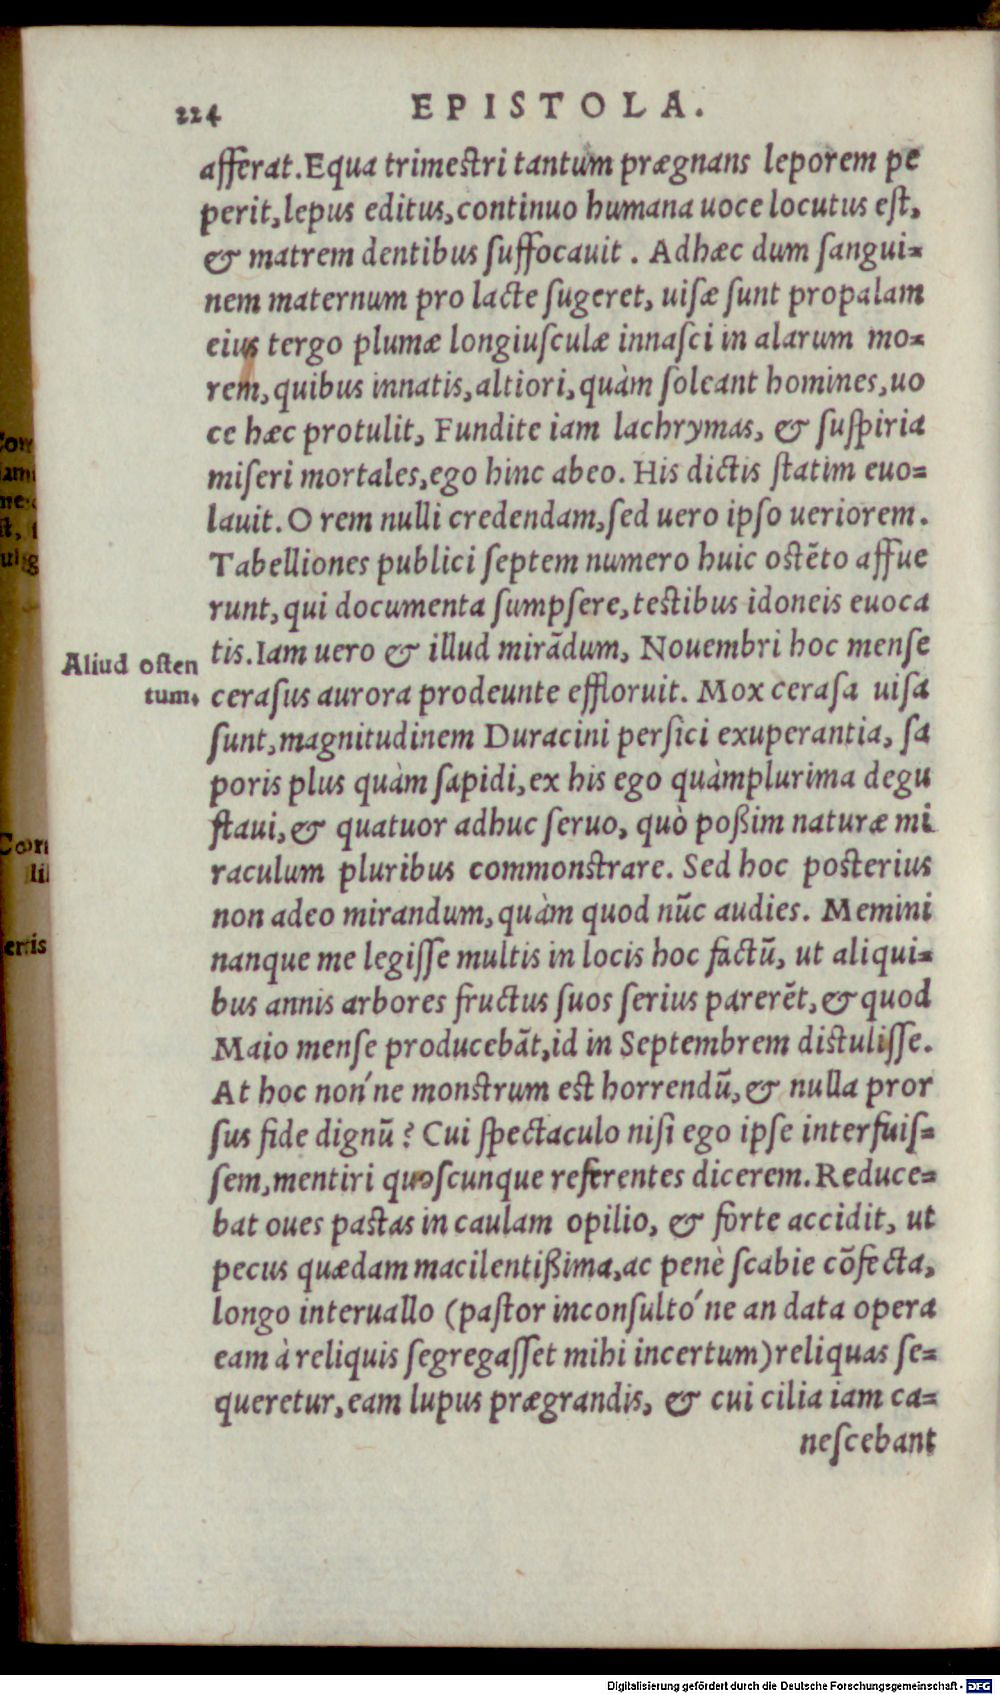 224 EPISTOLA.
afferat. Equa trimestri tantum prægnans leporem pe
perit, lepus editus, continuo humana uoce locutus eſt,
& matrem dentibus ſuffocauit. Adhæc dum ſangui-
nem maternum pro lacte ſugeret, uiſæ ſunt propalam
eius tergo plumæ longiuſculæ innaſci in alarum mo-
rem, quibus innatis, altiori, quàm ſoleant homines, uo
ce hæc protulit, Fundite iam lachrymas, & ſuſpiria
miſeri mortales, ego hinc abeo. His dictis ſtatim euo-
lauit. O rem nulli credendam, ſed uero ipſo ueriorem.
Tabelliones publici ſeptem numero huic oſtẽto affue
runt, qui documenta ſumpſere, teſtibus idoneis euoca
tis. Iam uero & illud mirãdum, Nouembri hoc menſe
Aliud oſten
tum.
ceraſus aurora prodeunte effloruit. Mox ceraſa uiſa
ſunt, magnitudinem Duracini perſici exuperantia, ſa
poris plus quàm ſapidi, ex his ego quàmplurima degu
ſtaui, & quatuor adhuc ſeruo, quò poßim naturæ mi
raculum pluribus commonſtrare. Sed hoc poſterius
non adeo mirandum, quàm quod nũc audies. Memini
nanque me legiſſe multis in locis hoc factũ, ut aliqui-
bus annis arbores fructus ſuos ſerius parerẽt, & quod
Maio menſe producebãt, id in Septembrem diſtuliſſe.
At hoc non´ne monſtrum eſt horrendũ, & nulla pror
ſus fide dignũ? Cui ſpectaculo niſi ego ipſe interfuiſ-
ſem, mentiri quoſcunque referentes dicerem. Reduce-
bat oues paſtas in caulam opilio, & forte accidit, ut
pecus quædam macilentißima, ac penè ſcabie cõfecta,
longo interuallo (paſtor inconſulto´ne an data opera
eam à reliquis ſegregaſſet mihi incertum) reliquas ſe-
queretur, eam lupus prægrandis, & cui cilia iam ca-
neſcebant
Digitalisierung gefördert durch die Deutsche Forschungsgemeinschaft - DFG